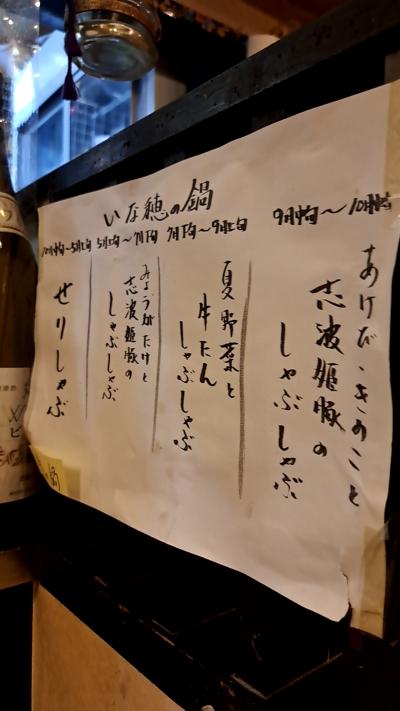 いな穂の鍋
9月中旬〜10月中旬
あけび・きのこと
志波姫豚の
しゃぶしゃぶ
7月下旬〜9月上旬
夏野菜と
牛たん
しゃぶしゃぶ
5月上旬〜7月下旬
みょうがたけと
志波姫豚の
しゃぶしゃぶ
10月中旬〜5月上旬
せりしゃぶ